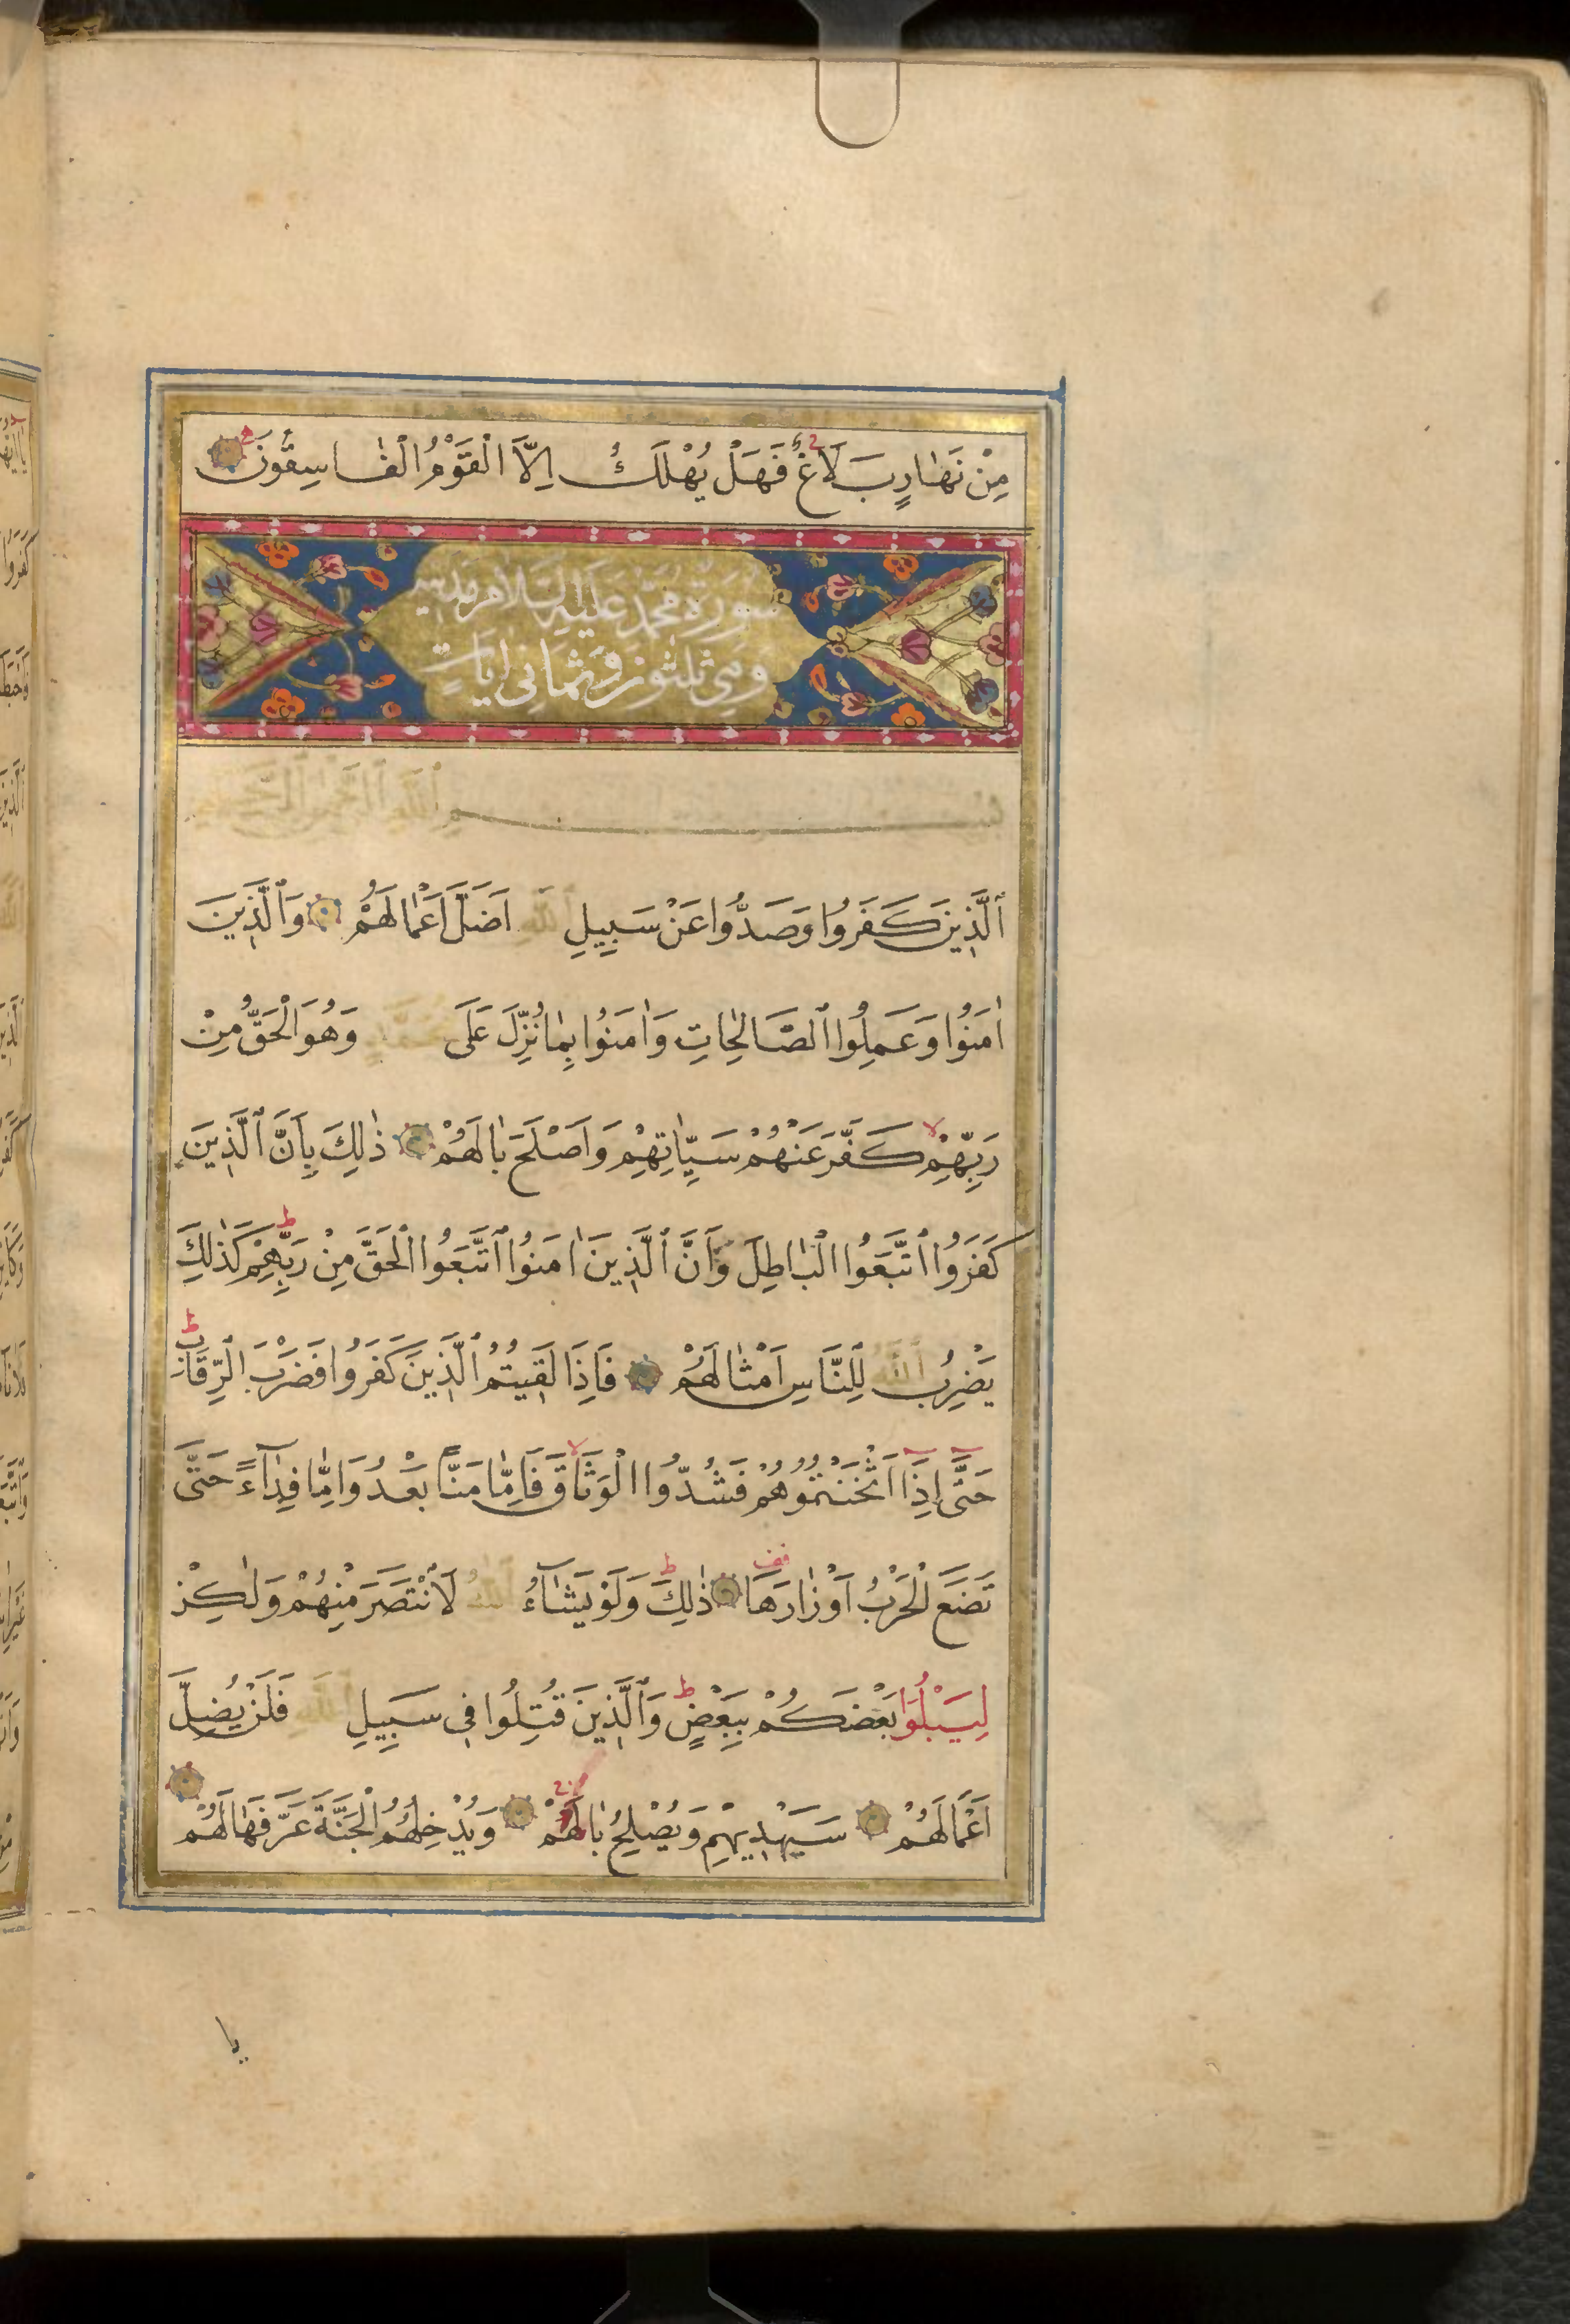 مِنْ نَهَارٍ بَلَاغٌ فَهَلْ يُهْلَكُ اِلَّا الْقَوْمُ الْفَاسِقُونَ
سورة محمد عليه السلام مدنية
وهي ثلثون وثماني ايات
بسم الله الرحمن الرحيم
اَلَّذِينَ كَفَرُوا وَصَدُّوا عَنْ سَبِيلِ اللَّهِ اَضَلَّ اَعْمَالَهُمْ وَالَّذِينَ
اٰمَنُوا وَعَمِلُوا الصَّالِحَاتِ وَاٰمَنُوا بِمَا نُزِّلَ عَلَى مُحَمَّدٍ وَهُوَ الْحَقُّ مِنْ
رَبِّهِمْ كَفَّرَ عَنْهُمْ سَيِّاٰتِهِمْ وَاَصْلَحَ بَالَهُمْ ذٰلِكَ بِاَنَّ الَّذِينَ
كَفَرُوا اتَّبَعُوا الْبَاطِلَ وَاَنَّ الَّذِينَ اٰمَنُوا اتَّبَعُوا الْحَقَّ مِنْ رَبِّهِمْ كَذٰلِكَ
يَضْرِبُ اللَّهُ لِلنَّاسِ اَمْثَالَهُمْ فَاِذَا لَقِيتُمُ الَّذِينَ كَفَرُوا فَضَرْبَ الرِّقَابِ
حَتَّى اِذَا اَثْخَنْتُمُوهُمْ فَشُدُّوا الْوَثَاقَ فَاِمَّا مَنًّا بَعْدُ وَاِمَّا فِدَاءً حَتَّى
تَضَعَ الْحَرْبُ اَوْزَارَهَا ذٰلِكَ وَلَوْ يَشَاءُ اللَّهُ لَانْتَصَرَ مِنْهُمْ وَلٰكِنْ
لِيَبْلُوَا بَعْضَكُمْ بِبَعْضٍ وَالَّذِينَ قُتِلُوا فِي سَبِيلِ اللَّهِ فَلَنْ يُضِلَّ
اَعْمَالَهُمْ سَيَهْدِيهِمْ وَيُصْلِحُ بَالَهُمْ وَيُدْخِلُهُمُ الْجَنَّةَ عَرَّفَهَا لَهُمْ
يا